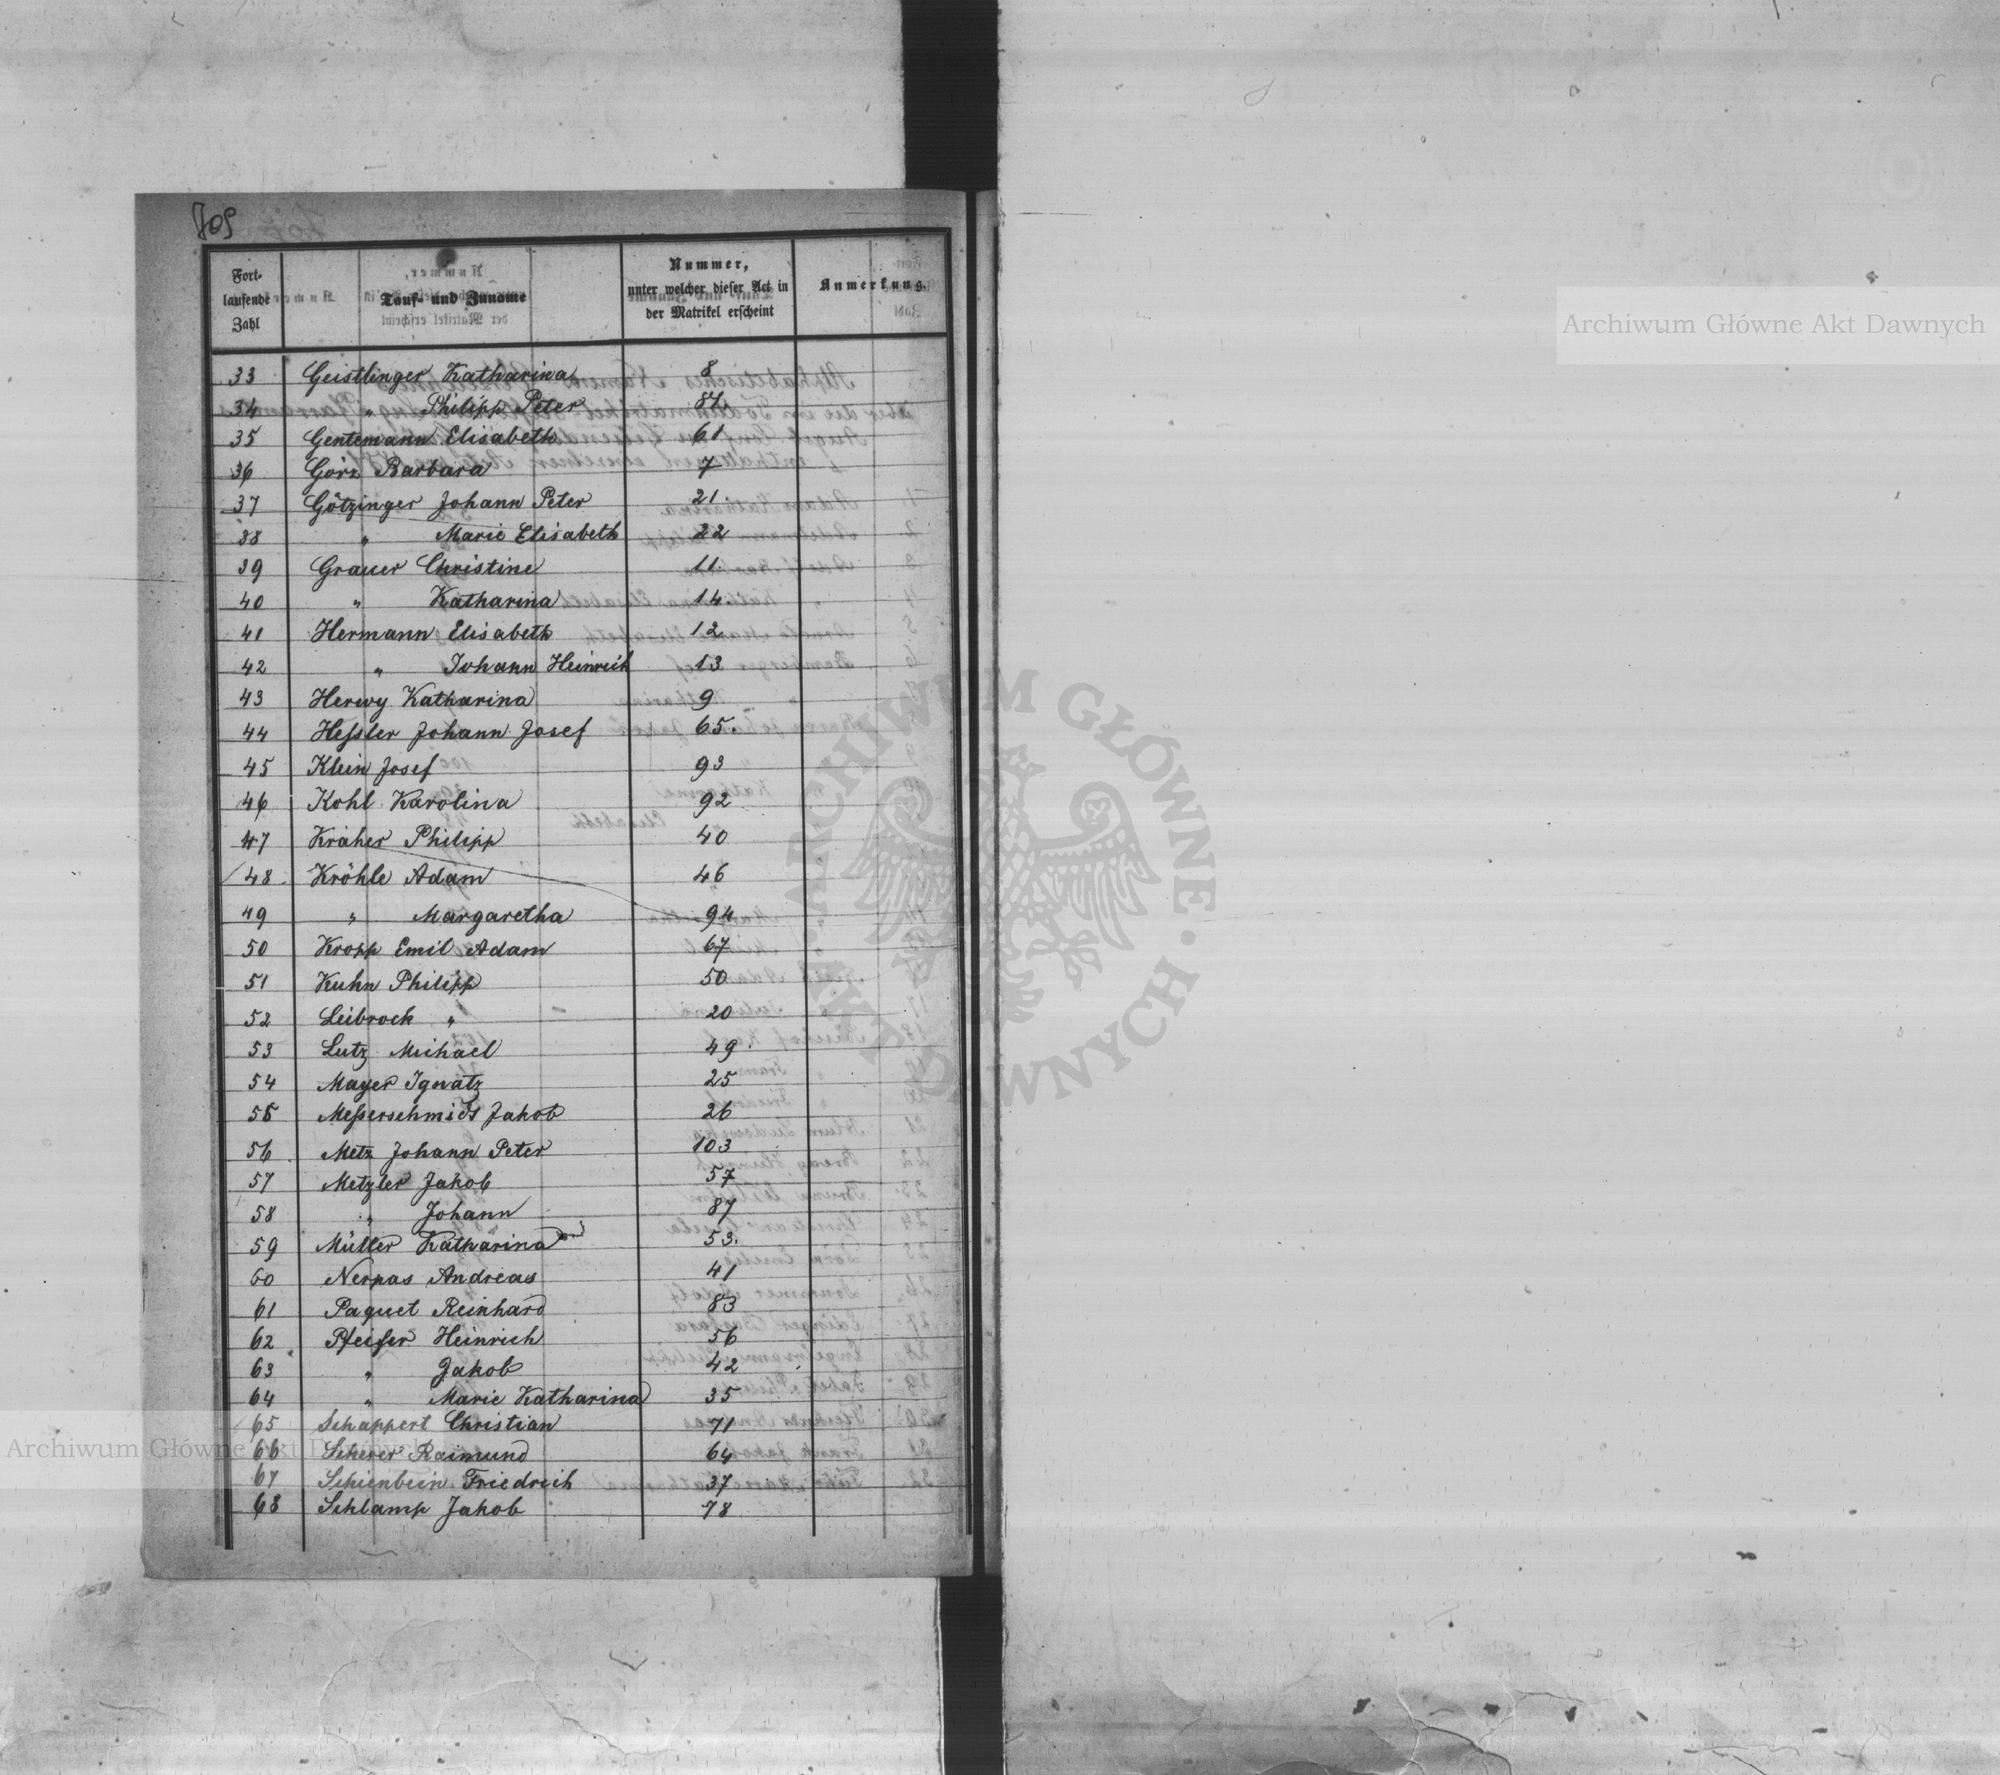 709
Fort-
laufende
Zahl
Tauf- und Zuname
Nummer,
unter welcher dieser Act in
der Matrikel erscheint
Anmerkung.
33 Geistlinger Katharina 8
34 " Philipp Peter 87.
35 Gentemann Elisabeth 61
36 Görz Barbara 7
37 Götzinger Johann Peter 21.
38 " Marie Elisabeth 22
39 Grauer Christine 11.
40 " Katharina 14.
41 Hermann Elisabeth 12
42 " Johann Heinrich 13
43 Herwy Katharina 9
44 Heſsler Johann Josef 65.
45 Klein Josef 93
46 Kohl Karolina 92
47 Kräher Philipp 40
48. Kröhle Adam 46
49 " Margaretha 94
50 Kropp Emil Adam 67
51 Kuhn Philipp 50
52 Leibrock " 20
53 Lutz Michael 49.
54 Mayer Ignatz 25
55 Meſserschmidt Jakob 26
56 Metz Johann Peter 103
57 Metzler Jakob 57
58 " Johann 87
59 Müller Katharina 53.
60 Nerpas Andreas 41
61 Paquet Reinhard 83
62 Pfeifer Heinrich 56
63 " Jakob 42
64 " Marie Katharina 35
65 Schappert Christian 71
66 Scherer Raimund 64
67 Schienbein Friedrich 37
68 Schlamp Jakob 78
Archiwum Główne Akt Dawnych
Archiwum Główne Akt Dawnych
ARCHIWUM GŁÓWNE AKT DAWNYCH